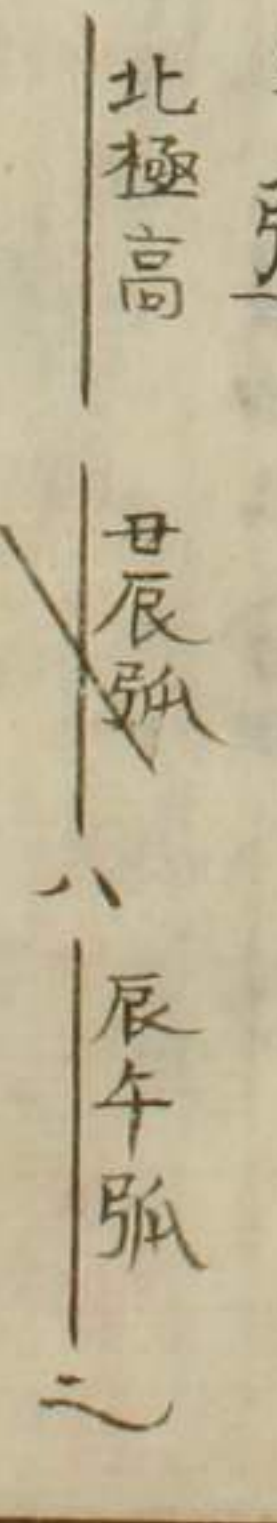 北極高 丑辰弧 八 辰午弧 二